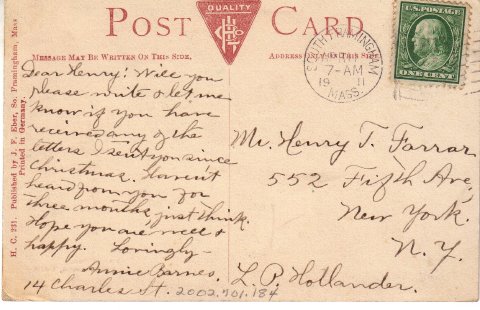 POST CARD
QUALITY
MESSAGE MAY BE WRITTEN ON THIS SIDE,
ADDRESS ONLY ON THIS SIDE.
H. C. 231. Published by J. F. Eber, So. Framingham, Mass
Printed in Germany.
Dear Henry: Will you
please write & let me
know if you have
received any of the
letters I sent you since
Christmas. Haven't
heard from you for
three months, just think.
Hope you are well &
happy. Lovingly-
Annie Barnes.
14 Charles St.
2002.701.184
SOUTH FRAMINGHAM
7-AM
19 11
MASS.
U.S. POSTAGE
ONE CENT
Mr. Henry T. Farrar
552 Fifth Ave,
New York.
N.Y.
L. P. Hollander.